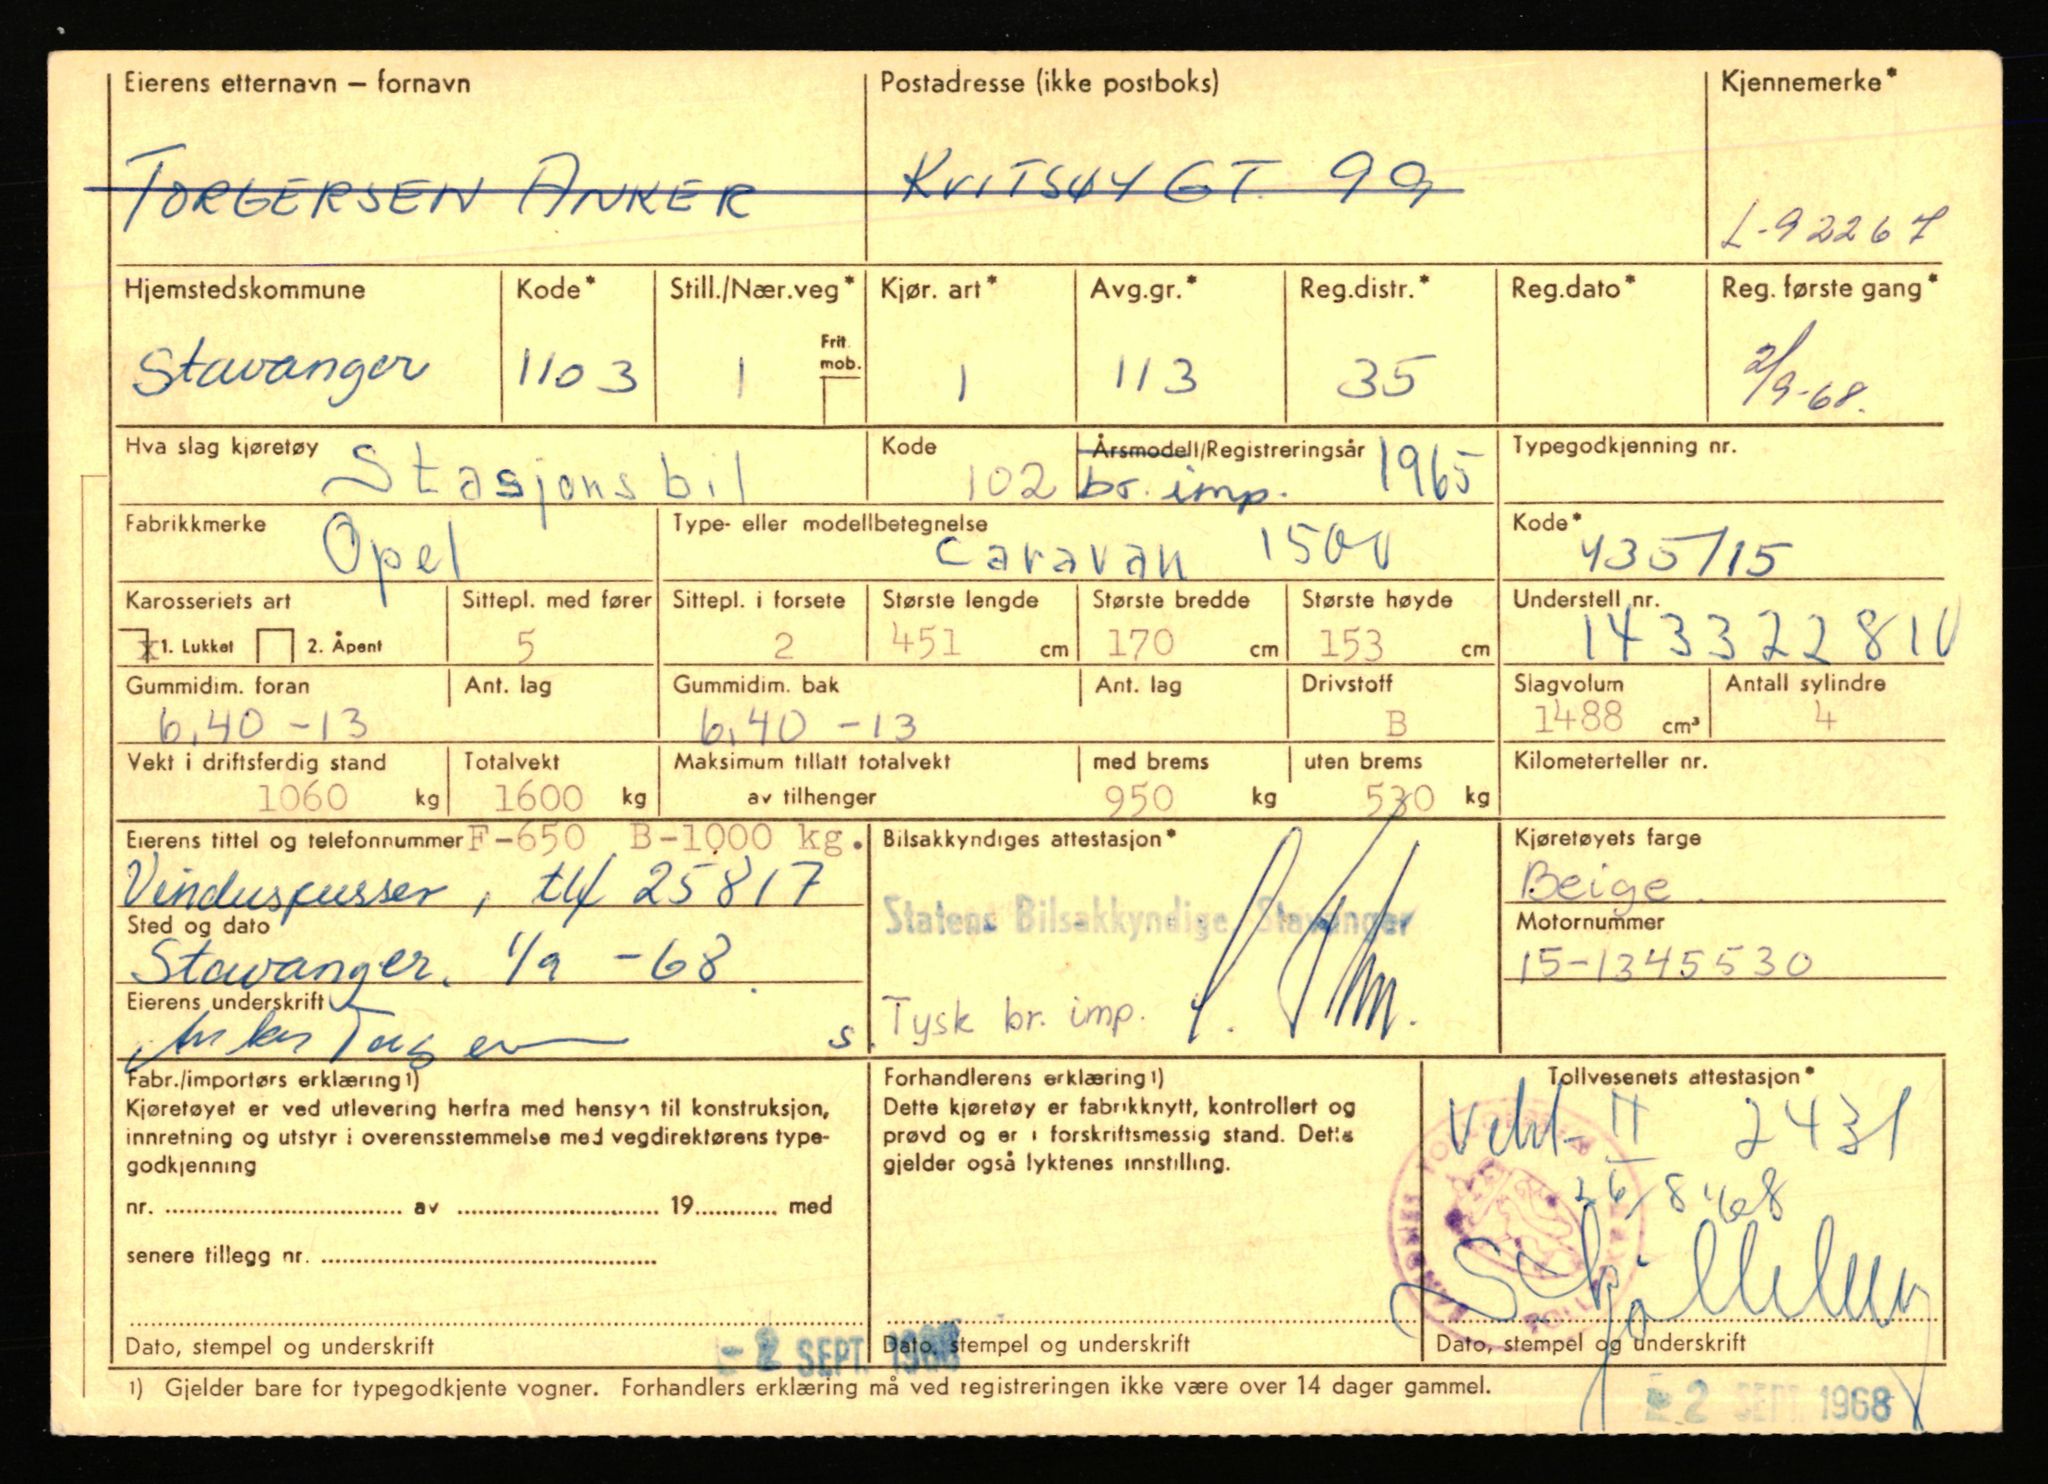 Eierens etternavn – fornavn Postadresse (ikke postboks) Kjennemerke*
TORGERSEN ANKER KVITSØYGT. 99 L-92267
Hjemstedskommune Kode* Still./Nær.veg* Kjør. art* Avg.gr.* Reg.distr.* Reg.dato* Reg. første gang*
Frit. mob.
Stavanger 1103 1 1 113 35 2/9-68.
Hva slag kjøretøy Stasjonsbil Kode 102 Årsmodell/Registreringsår 1965 Typegodkjenning nr.
br. imp.
Fabrikkmerke Opel Type- eller modellbetegnelse Caravan 1500 Kode* 435/15
Karosseriets art Sittepl. med fører Sittepl. i forsete Største lengde Største bredde Største høyde Understell nr.
x 1. Lukket 2. Åpent 5 2 451 cm 170 cm 153 cm 143322810
Gummidim. foran Ant. lag Gummidim. bak Ant. lag Drivstoff Slagvolum Antall sylindre
6,40-13 6,40-13 B 1488 cm³ 4
Vekt i driftsferdig stand Totalvekt Maksimum tillatt totalvekt med brems uten brems Kilometerteller nr.
1060 kg 1600 kg av tilhenger 950 kg 530 kg
Eierens tittel og telefonnummer F-650 B-1000 kg. Bilsakkyndiges attestasjon* Kjøretøyets farge
Vinduspusser, tlf 25817 Beige
Statens Bilsakkyndige, Stavanger
Sted og dato Motornummer
Stavanger, 1/9-68. 15-1345530
Eierens underskrift
Anker Torgersen s. Tysk br. imp.
Fabr./importørs erklæring 1) Forhandlerens erklæring 1) Tollvesenets attestasjon*
Kjøretøyet er ved utlevering herfra med hensyn til konstruksjon, Dette kjøretøy er fabrikknytt, kontrollert og
innretning og utstyr i overensstemmelse med vegdirektørens type- prøvd og er i forskriftsmessig stand. Dette
godkjenning gjelder også lyktenes innstilling.
II 2431
26/8 '68
nr. av 19 med
senere tillegg nr.
Dato, stempel og underskrift Dato, stempel og underskrift Dato, stempel og underskrift
- 2 SEPT. 1968
1) Gjelder bare for typegodkjente vogner. Forhandlers erklæring må ved registreringen ikke være over 14 dager gammel.
- 2 SEPT. 1968